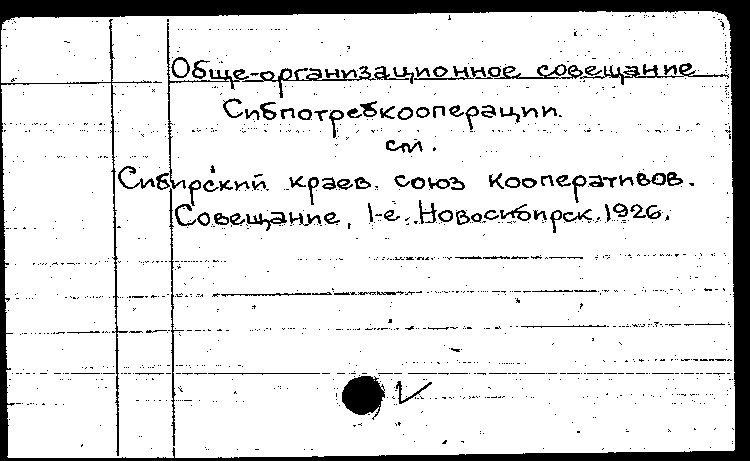 Обще-организационное совещание
Сибпотребкооперации.
см.
Сибирский краев. союз кооперативов.
Совещание, 1-е. Новосибирск. 1926.